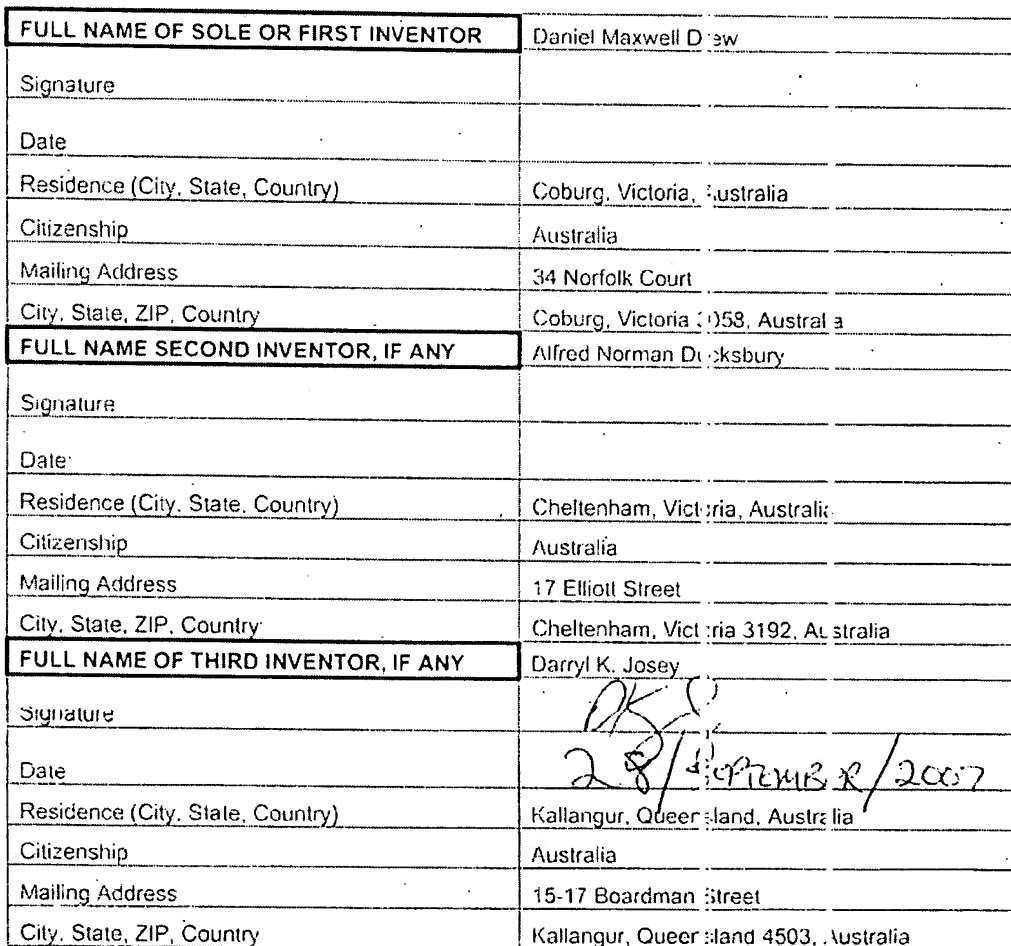 FULL NAME OF SOLE OR FIRST INVENTOR Daniel Maxwell Drew
Signature
Date
Residence (City, State, Country) Coburg, Victoria, Australia
Citizenship Australia
Mailing Address 34 Norfolk Court
City, State, ZIP, Country Coburg, Victoria 3058, Australia
FULL NAME SECOND INVENTOR, IF ANY Alfred Norman Ducksbury
Signature
Date
Residence (City, State, Country) Cheltenham, Victoria, Australia
Citizenship Australia
Mailing Address 17 Elliott Street
City, State, ZIP, Country Cheltenham, Victoria 3192, Australia
FULL NAME OF THIRD INVENTOR, IF ANY Darryl K. Josey
Signature
Date 28/SEPTEMBER/2007
Residence (City, State, Country) Kallangur, Queensland, Australia
Citizenship Australia
Mailing Address 15-17 Boardman Street
City, State, ZIP, Country Kallangur, Queensland 4503, Australia